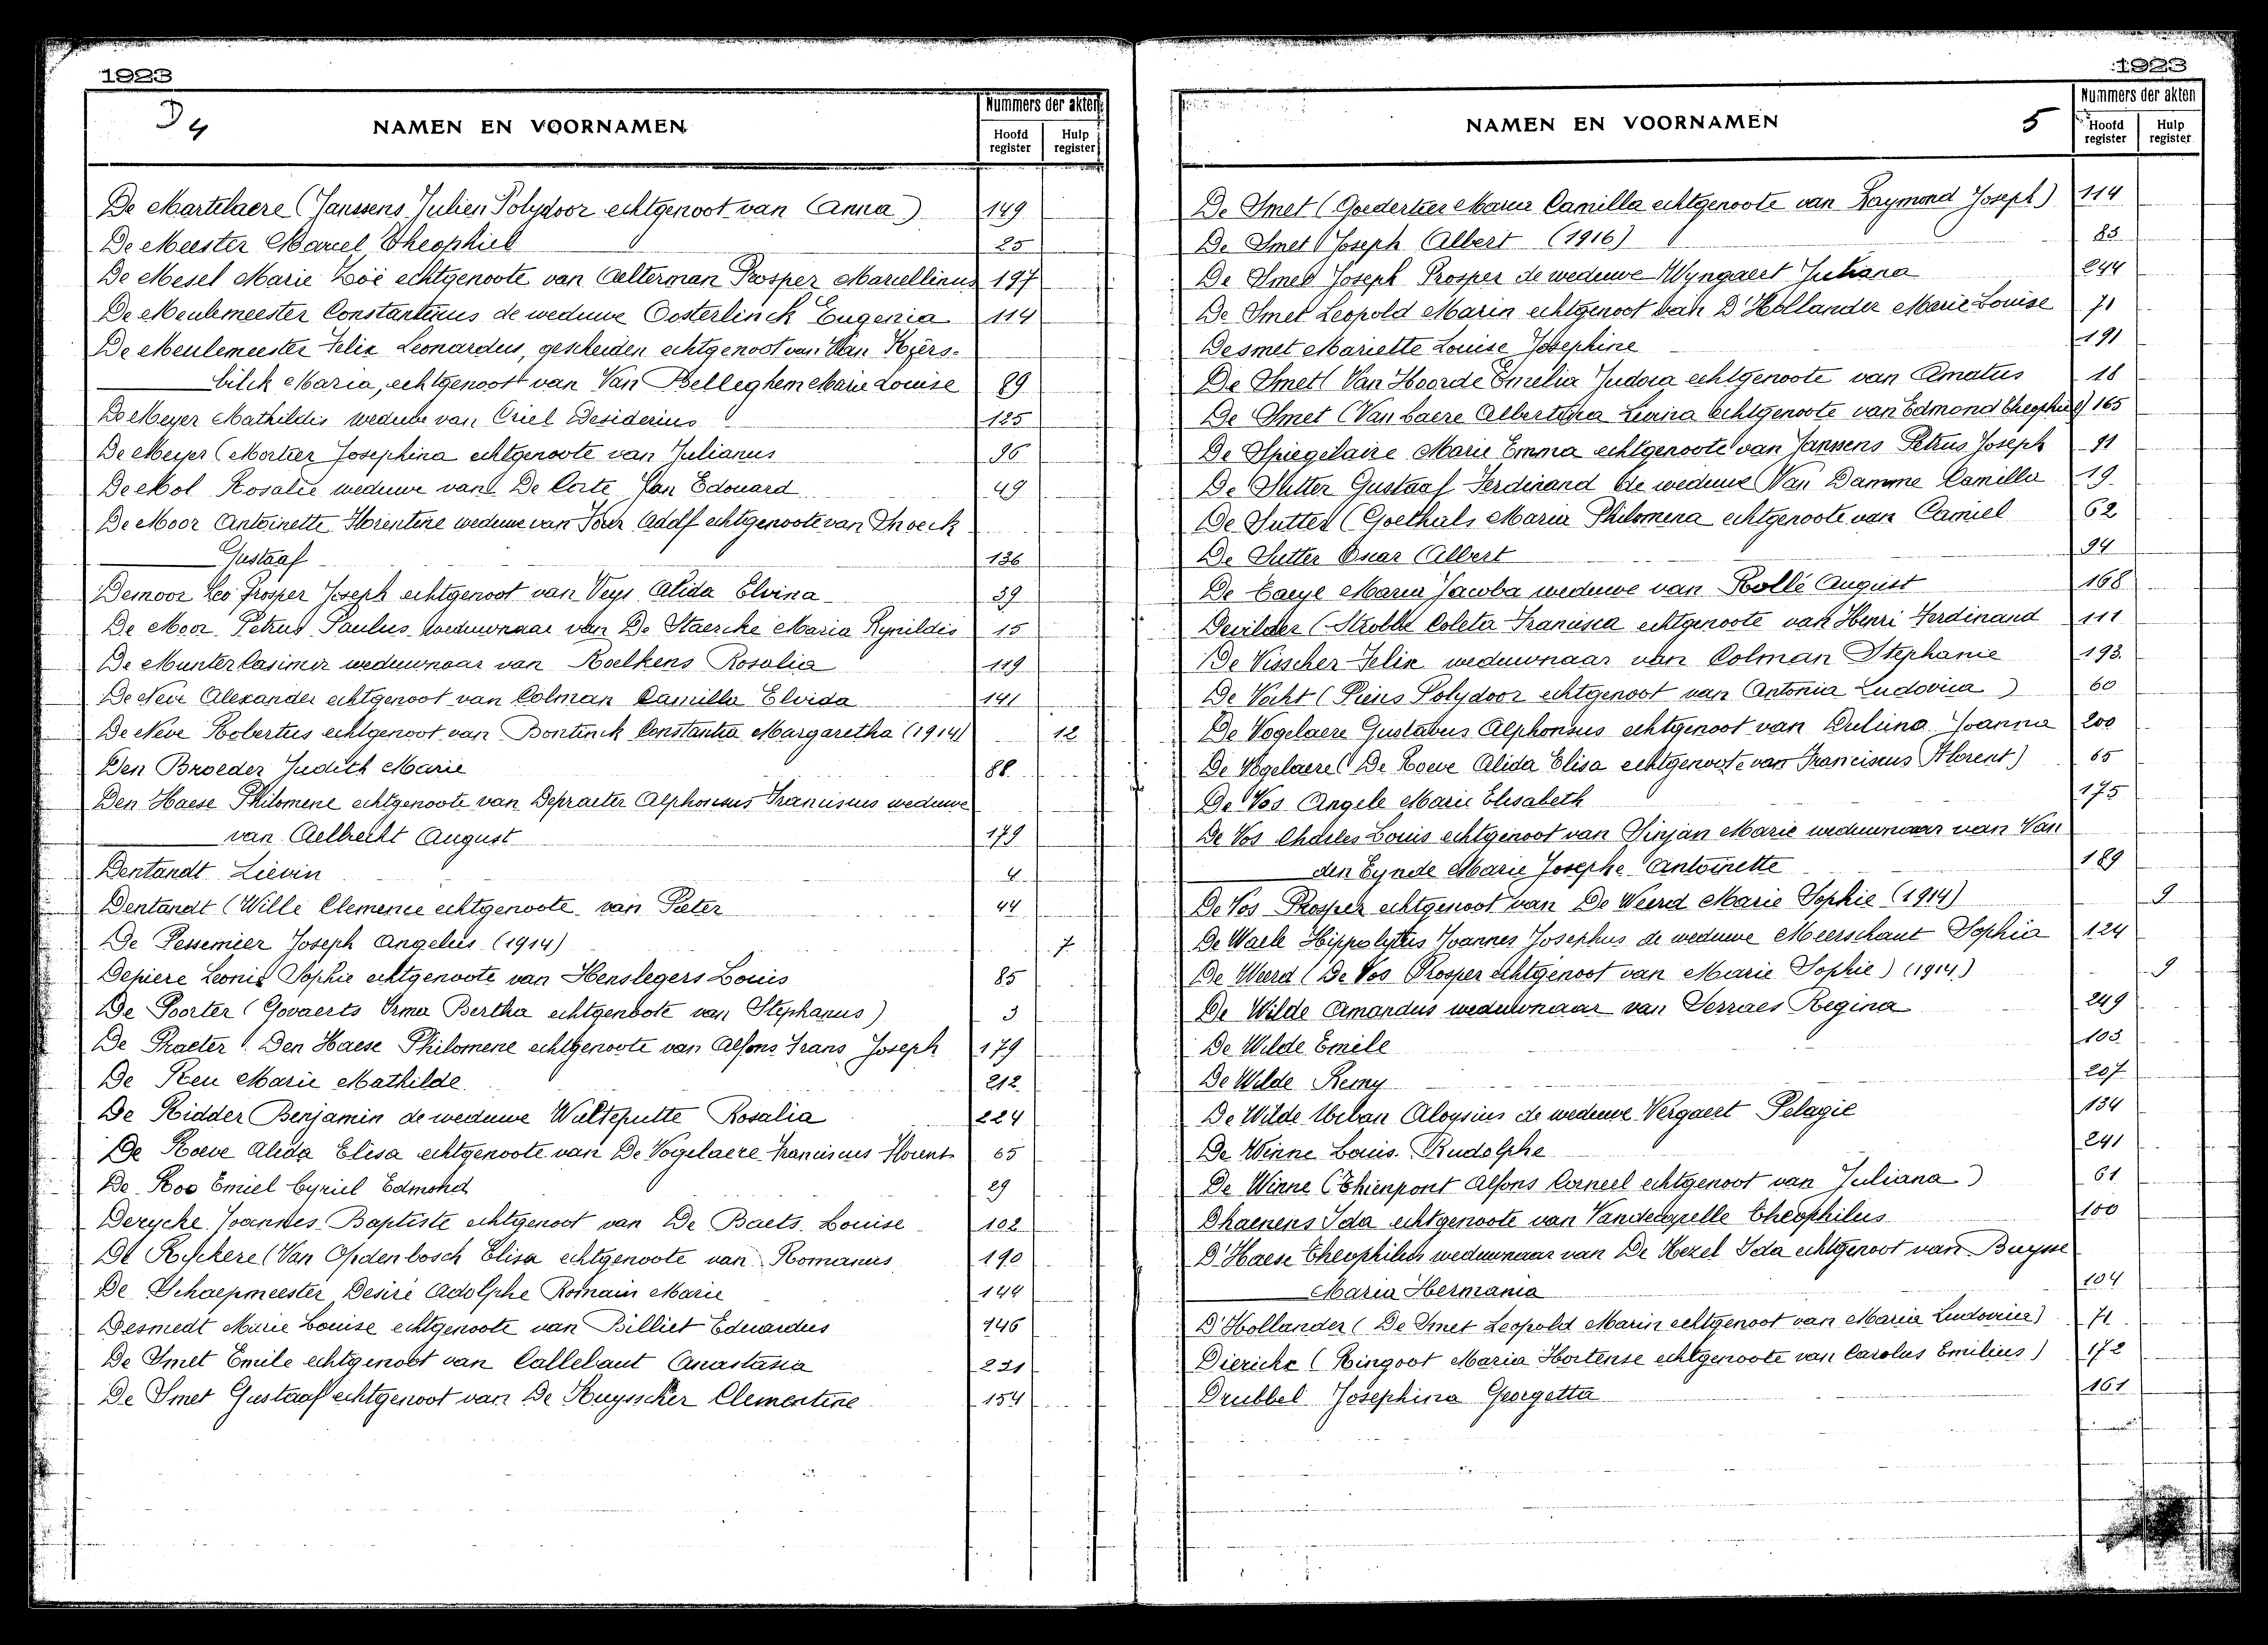 1923
D 4
NAMEN EN VOORNAMEN
Nummers der akten
Hoofd register
Hulp register
De Martelaere (Janssens Julien Polydoor echtgenoot van Anna) 149
De Meester Marcel Theophiel 25
De Mesel Marie Zoë echtgenoote van Aelterman Prosper Marcellinus 197
De Meulemeester Constantinus de weduwe Oosterlinck Eugenia 114
De Meulemeester Felix Leonardus, gescheiden echtgenoot van Van Kers-
bilck Maria, echtgenoot van Van Belleghem Marie Louise 89
De Meyer Mathildis weduwe van Criel Desiderius 125
De Meyer (Mortier Josephina echtgenoote van Julianus 96
De Mol Rosalie weduwe van De Corte Jan Edouard 49
De Moor Antoinette Florentine weduwe van Adolf echtgenoote van
Gustaaf 136
Demoor Leo Prosper Joseph echtgenoot van Veys Alida Elvina 39
De Moor Petrus Paulus weduwnaar van De Staercke Maria Rynildis 15
De Munter Casimir weduwnaar van Roelkens Rosalia 119
De Neve Alexander echtgenoot van Colman Camilla Elvida 141
De Neve Robertus echtgenoot van Bontinck Constantia Margaretha (1914) 12
Den Broeder Judith Marie 88
Den Haese Philomene echtgenoote van Depraeter Alphonsus Franciscus weduwe
van Aelbrecht August 179
Dentandt Lievin 4
Dentandt (Wille Clemence echtgenoote van Pieter 44
De Pessemier Joseph Angelus (1914) 7
Depiere Leonie Sophie echtgenoote van Henslegers Louis 85
De Poorter (Govaerts Irma Bertha echtgenoote van Stephanus) 3
De Praeter (Den Haese Philomene echtgenoote van Alfons Frans Joseph 179
De Reu Marie Mathilde 212
De Ridder Benjamin de weduwe Walteputte Rosalia 224
De Roeve Alida Elisa echtgenoote van De Vogelaere Franciscus Florent 65
De Roo Emiel Cyriel Edmond 29
Derycke Joannes Baptiste echtgenoot van De Baets Louise 102
De Ryckere (Van Opdenbosch Elisa echtgenoote van Romanus 190
De Schaepmeester Desiré Adolphe Romain Marie 144
Desmedt Marie Louise echtgenoote van Billiet Eduardus 146
De Smet Emile echtgenoot van Callebaut Anastasia 221
De Smet Gustaaf echtgenoot van De Huysscher Clementine 154
1923
NAMEN EN VOORNAMEN
5
Nummers der akten
Hoofd register
Hulp register
De Smet (Goedertier Maria Camilla echtgenoote van Raymond Joseph) 114
De Smet Joseph Albert (1916) 83
De Smet Joseph Prosper de weduwe Wyngaert Juliana 244
De Smet Leopold Marin echtgenoot van D'Hollander Marie Louise 71
Desmet Mariette Louise Josephine 191
De Smet (Van Hoorde Emelia Eudoxa echtgenoote van Amatus 18
De Smet (Van Laere Albertina Leonia echtgenoote van Edmond Theophiel) 165
De Spiegelaire Marie Emma echtgenoote van Jannens Petrus Joseph 91
De Sutter Gustaaf Ferdinand de weduwe Van Damme Camilla 19
De Sutter (Goethals Maria Philomena echtgenoote van Camiel 62
De Sutter Oscar Albert 94
De Taeye Maria Jacoba weduwe van Rollé August 168
Dewilder (Strobbe Coleta Francisca echtgenoote van Henri Ferdinand 111
De Visscher Felix weduwnaar van Colman Stephanie 193
De Vocht (Piens Polydoor echtgenoot van Antonia Ludovica) 60
De Vogelaere Gustavus Alphonsus echtgenoot van Joanna 200
De Vogelaere (De Roeve Alida Elisa echtgenoote van Franciscus Florent) 65
De Vos Angele Marie Elisabeth 175
De Vos Charles Louis echtgenoot van Sinjan Marie weduwnaar van Van
den Eynde Marie Josephe Antoinette 189
De Vos Prosper echtgenoot van De Weerd Marie Sophie (1914) 9
De Waele Hippolytus Joannes Josephus de weduwe Meerschaut Sophia 124
De Weerd (De Vos Prosper echtgenoot van Marie Sophie) (1914) 9
De Wilde Amandus weduwnaar van Serraes Regina 249
De Wilde Emile 103
De Wilde Remy 207
De Wilde Urban Aloysius de weduwe Vergaert Pelagie 134
De Winne Louis Rudolphe 241
De Winne (Thienpont Alfons Corneel echtgenoot van Juliana) 61
Dhaenens Ida echtgenoote van Vandecapelle Theophilus 100
D'Haese Theophilus weduwnaar van De Kezel Ida echtgenoot van Buysse
Maria Hermania 104
D'Hollander (De Smet Leopold Marin echtgenoot van Maria Ludovica) 71
Diericks (Ringoot Maria Hortense echtgenoote van Carolus Emilius) 172
Drubbel Josephina Georgetta 161